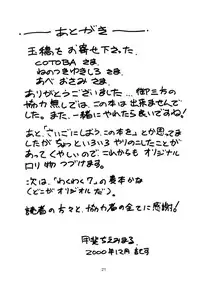 あとがき
玉稿をお寄せ下さった、
COTOBA さま
ねのつきゆきしろ さま
あべ おさみ さま
ありがとうございました。御三方の
協力無しでは、この本は出来ませんで
した。また、一緒にやれたら良いですね!
あと、"さいごにしよう、この本を"とか思ってま
したがちょっといろいろやりのこしたことが
あってくやしいので、これからもオリジナル
ロリ物 つづけます。
次は、「わくわく7」の奥本かな
(どこがオリジナルだ)
読者の方々と、協力者の全てに感謝!
2000年12月 記す